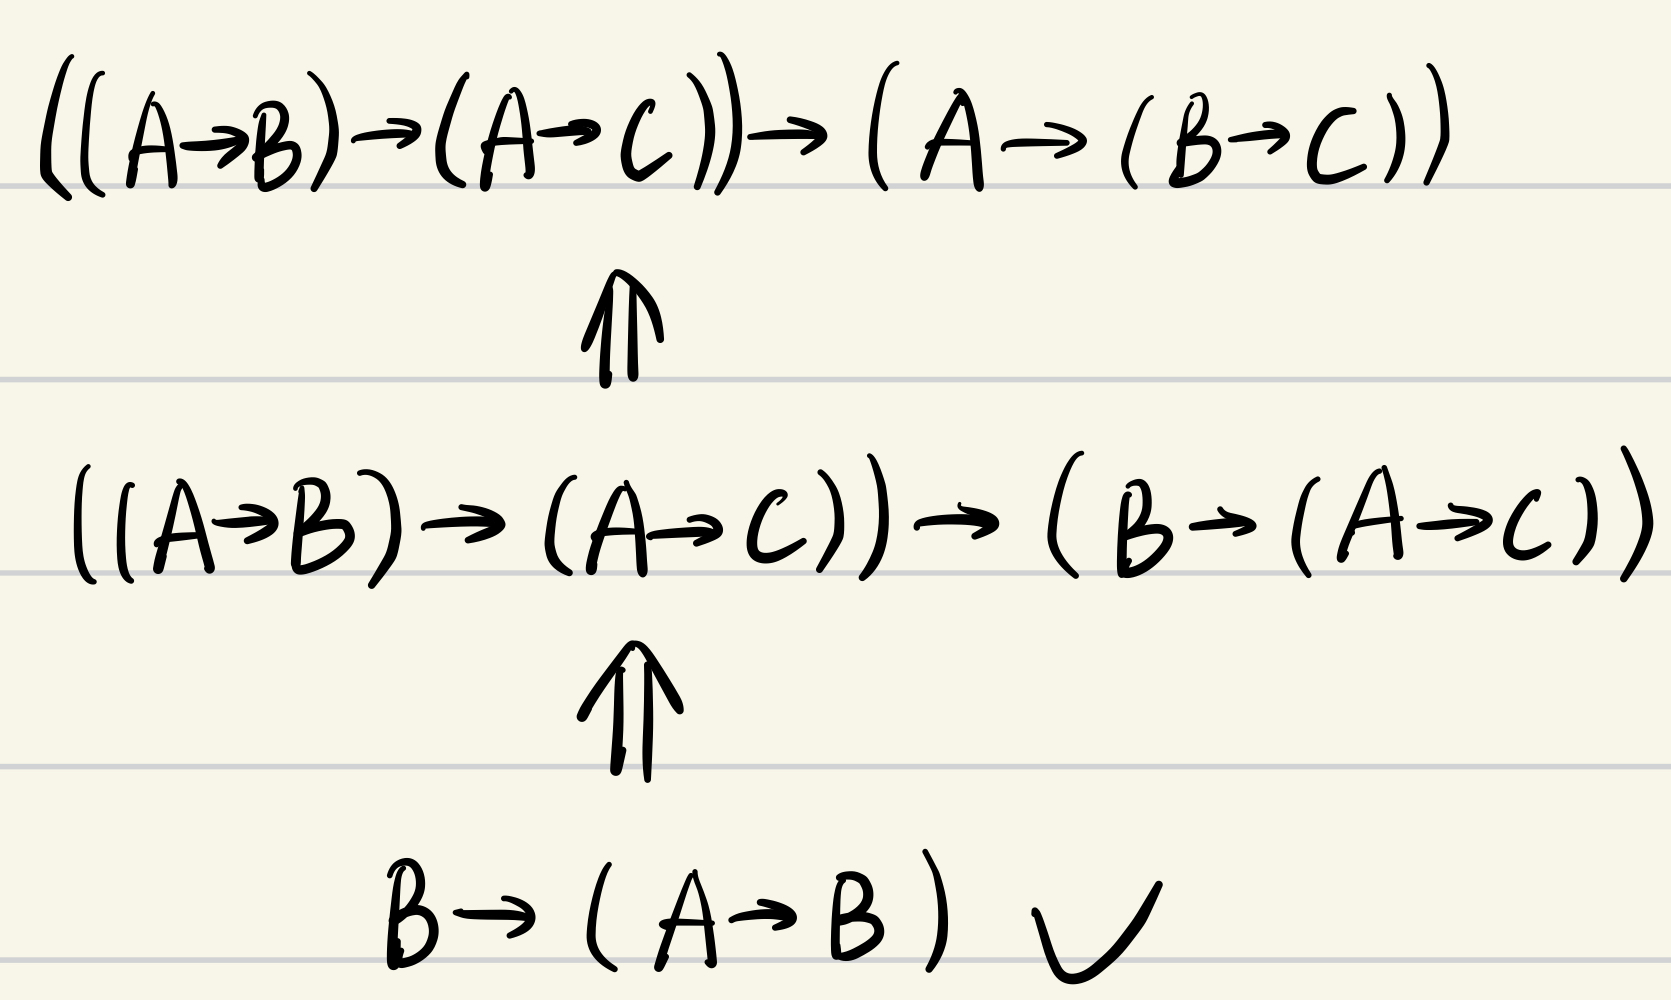 (((A→B)→(A→C))→(A→(B→C))
⇑
((A→B)→(A→C))→(B→(A→C))
⇑
B→(A→B) ✓